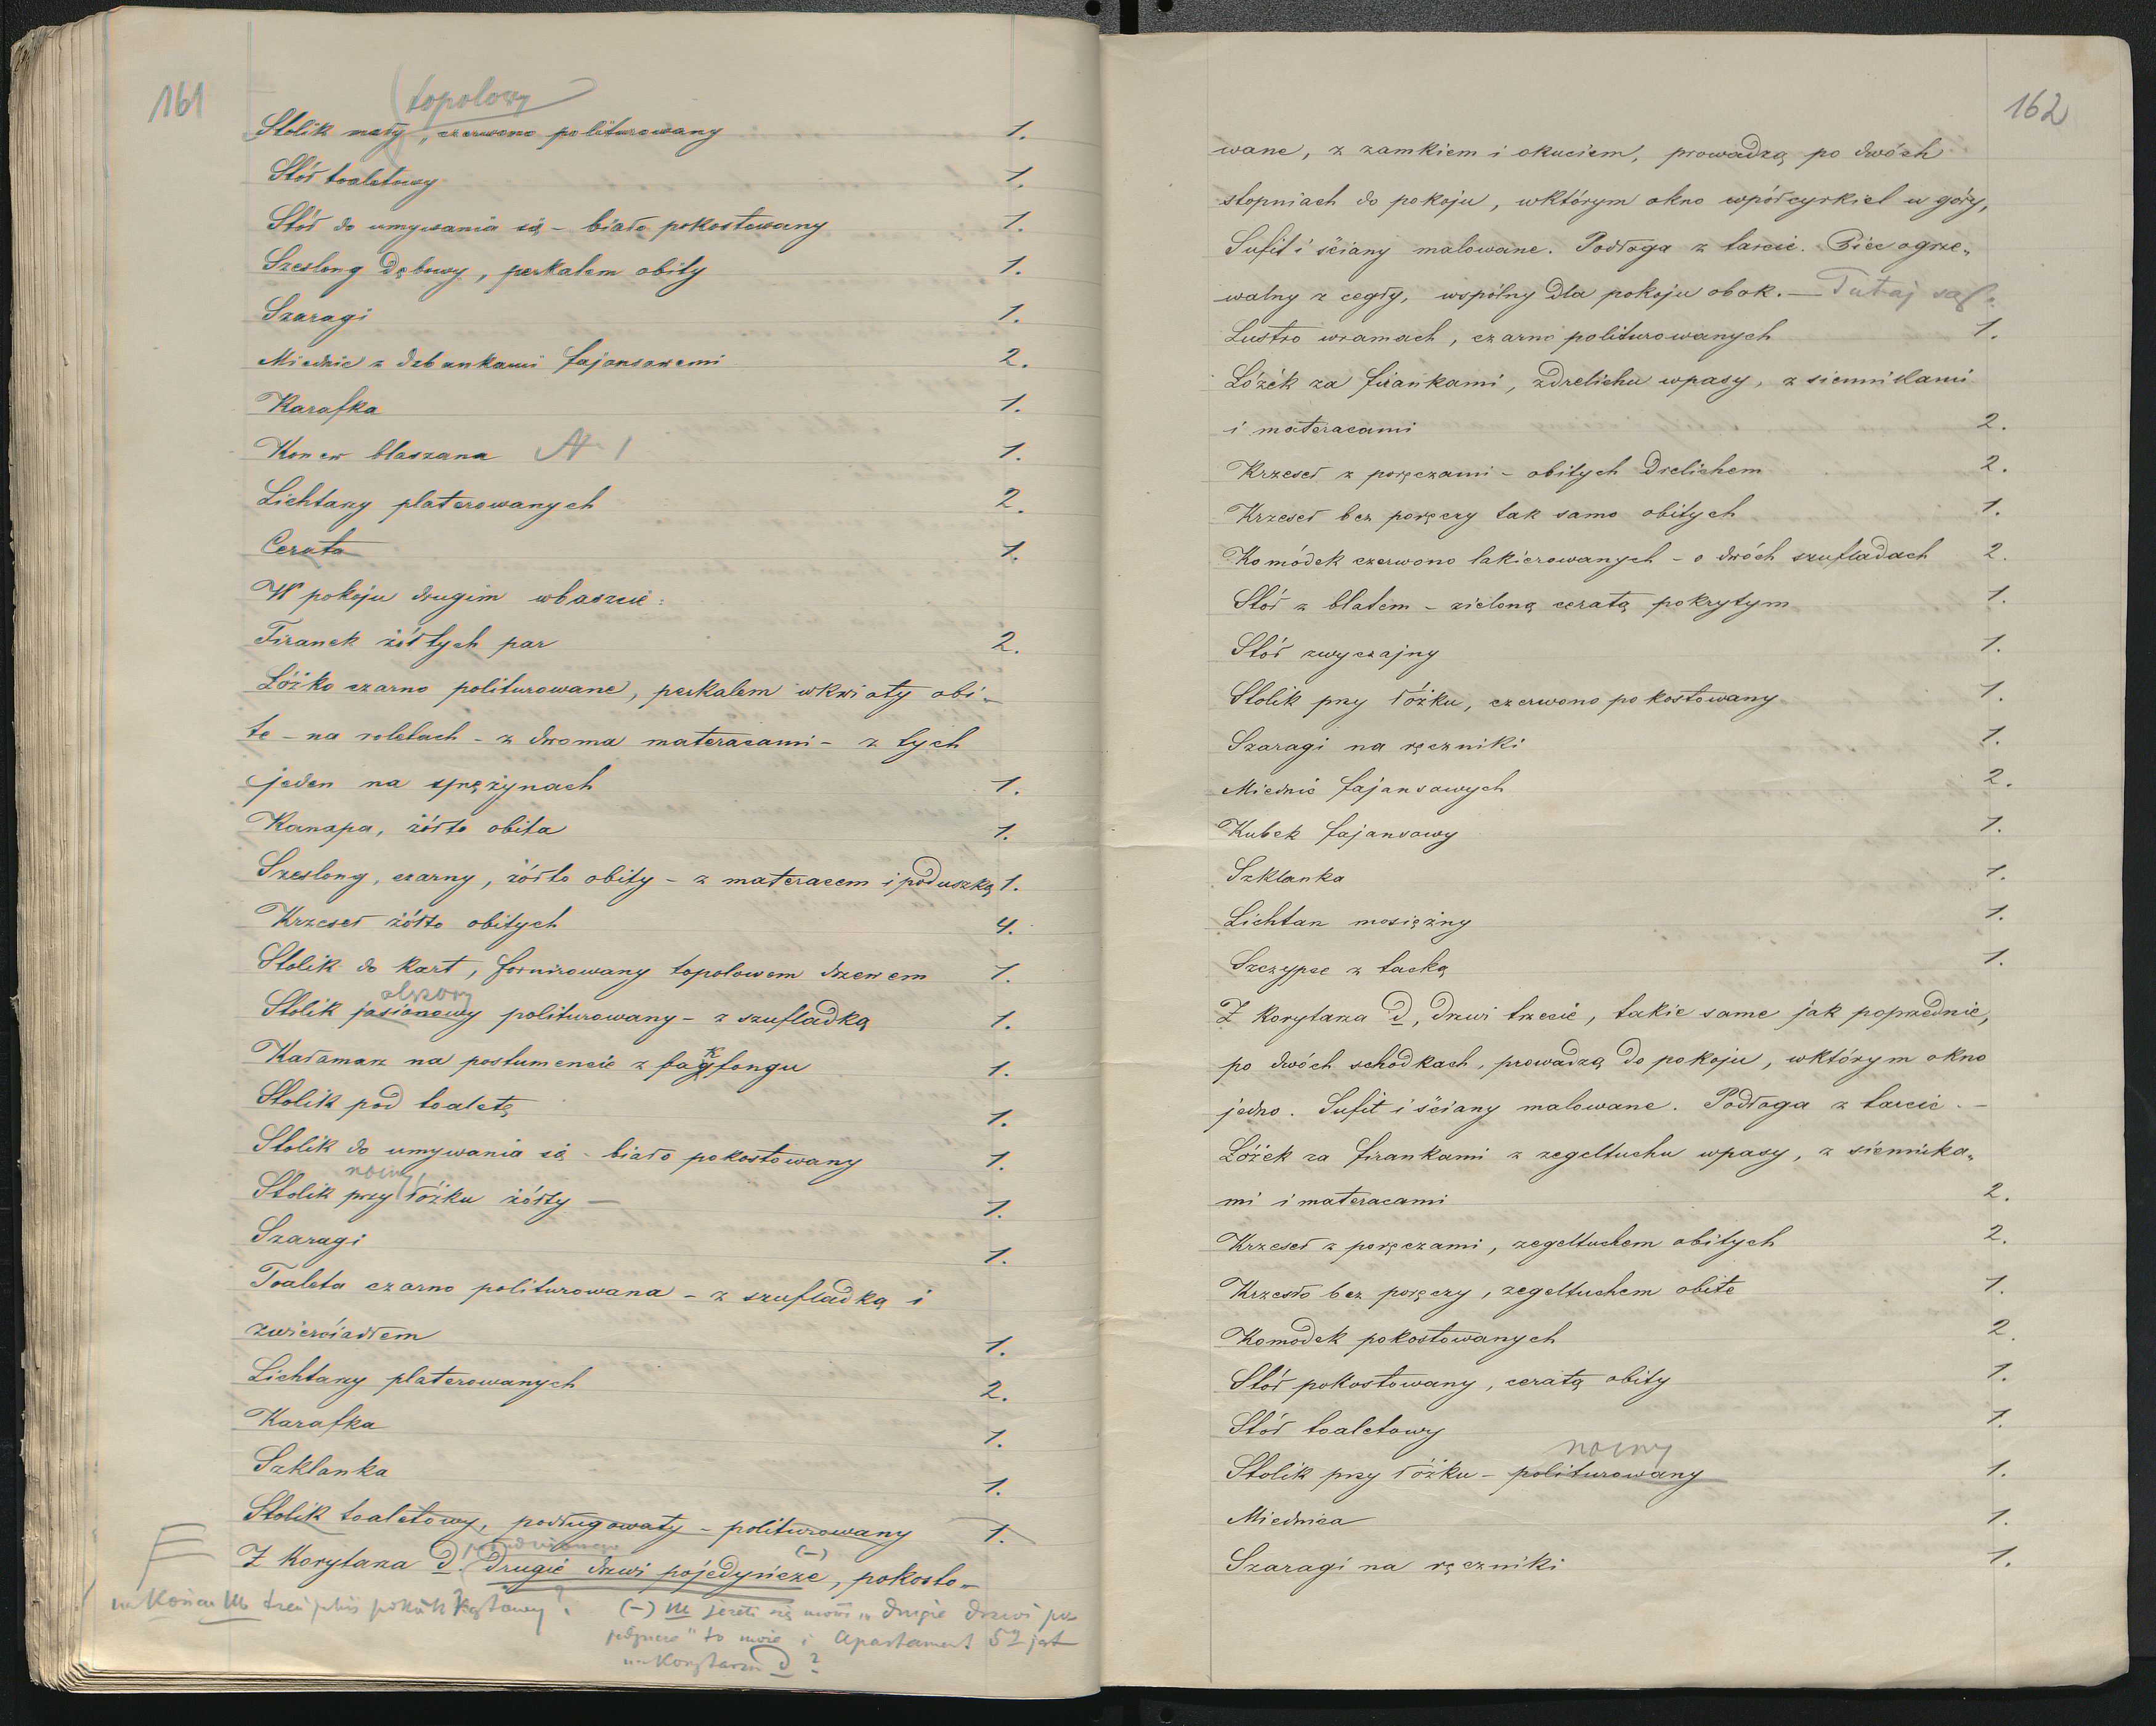 161
topolowy
Stolik mały, czerwono politurowany 1.
Stół toaletowy 1.
Stół do umywania się - biało pokostowany 1.
Szeslong dębowy, perkalem obity 1.
Szaragi 1.
Miednic z dzbankami fajansowemi 2.
Karafka 1.
Konew blaszana № 1 1.
Lichtarzy platerowanych 2.
Cerata 1.
W pokoju drugim wbaszcie:
Firanek żółtych par 2.
Łóżko czarno politurowane, perkalem wkwiaty obi-
te - na roletach - z dwoma materacami - z tych
jeden na sprężynach 1.
Kanapa, żółto obita 1.
Szeslong, czarny, żółto obity - z materacem i poduszką 1.
Krzeseł żółto obitych 4.
Stolik do kart, fornirowany topolowem drzewem 1.
olszowy
Stolik jasionowy politurowany - z szufladką 1.
Kałamarz na postumencie z 1.
Stolik pod toaletę 1.
Stolik do umywania się - biało pokostowany 1.
nocny
Stolik przy łóżku żółty - 1.
Szaragi 1.
Toaleta czarno politurowana - z szufladką i
zwierciadłem 1.
Lichtarzy platerowanych 2.
Karafka 1.
Szklanka 1.
Stolik toaletowy, podługowaty - politurowany 1.
(-)
Z Korytarza d. drugie drzwi pojedyńcze, pokosto-
na Końcu pokoik
(-) NB jeżeli się mówi "drugie drzwi po-
jedyncze" to może i Apartament 52 jest
na Korytarzu d?
162
wane, z zamkiem i okuciem, prowadzą po dwóch
stopniach do pokoju, wktórym okno wpółcyrkiel u góry,
Sufit i ściany malowane. Podłoga z tarcic. Piec ogrze-
walny z cegły, wspólny dla pokoju obok. - Tutaj są
Lustro wramach, czarno politurowanych 1.
Łóżek za firankami, zdrelichu wpasy, z siennikami
i materacami 2.
Krzeseł z poręczami - obitych drelichem 2.
Krzeseł bez poręczy tak samo obitych 1.
Komódek czerwono lakierowanych - o dwóch szufladach 2.
Stół z blatem - zieloną ceratą pokrytym 1.
Stół zwyczajny 1.
Stolik przy łóżku, czerwono pokostowany 1.
Szaragi na ręczniki 1.
Miednic fajansowych 2.
Kubek fajansowy 1.
Szklanka 1.
Lichtarz mosiężny 1.
Szczypce z tacką 1.
Z Korytarza d, drzwi trzecie, takie same jak poprzednie,
po dwóch schodkach, prowadzą do pokoju, wktórym okno
jedno. Sufit i ściany malowane. Podłoga z tarcic. -
Łóżek za firankami z zegeltuchu wpasy, z siennika-
mi i materacami 2.
Krzeseł z poręczami, zegeltuchem obitych 2.
Krzesło bez poręczy, zegeltuchem obite 1.
Komodek pokostowanych 2.
Stół pokostowany, ceratą obity 1.
Stół toaletowy 1.
nocny
Stolik przy łóżku - politurowany 1.
Miednica 1.
Szaragi na ręczniki 1.